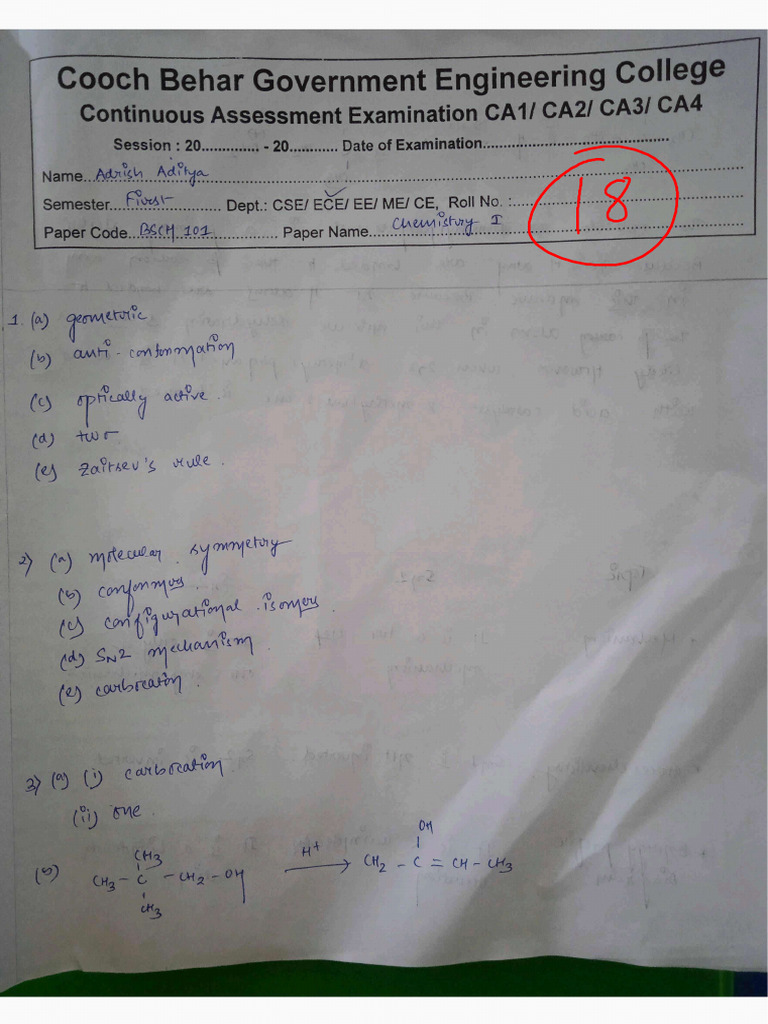 Cooch Behar Government Engineering College
Continuous Assessment Examination CA1/ CA2/ CA3/ CA4
Session : 20............. - 20........... Date of Examination..........................................
Name...Adrish Aditya
Semester...First Dept.: CSE/ ECE/ EE/ ME/ CE, Roll No. :
18
Paper Code...BSCH 101 Paper Name...Chemistry I
1. (a) geometric.
(b) anti-conformation
(c) optically active.
(d) two
(e) Zaitsev's rule.
2) (a) molecular symmetry
(b) conformers.
(c) configurational isomers.
(d) SN2 mechanism.
(e) carbocation.
3) (a) (i) carbocation.
(ii) one.
(b) CH3 - C - CH2 - OH H+ CH2 - C = CH - CH3
CH3 OH
CH3